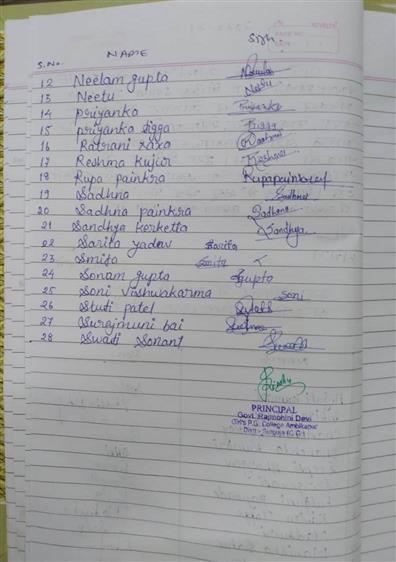 S.No. NAME Sign
12 Neelam gupta
13 Neetu Neetu
14 priyanka Priyanka
15 priyanka tigga Tigga
16 Ratrani xaxa Ratrani
17 Reshma kujur Reshma
18 Rupa painkra Rupapainkra
19 Sadhna Sadhna
20 Sadhna painkra Sadhana
21 Sandhya kerketta Sandhya
22 Sarita yadav Sarita
23 Smita Smita
24 Sonam gupta Gupta
25 Soni vishwakarma Soni
26 Stuti patel
27 Surajmuni bai
28 Swati Sonant
PRINCIPAL
Govt. Rajmohini Devi
Girl's P.G. College Ambikapur
Distt - Surguja (C.G.)